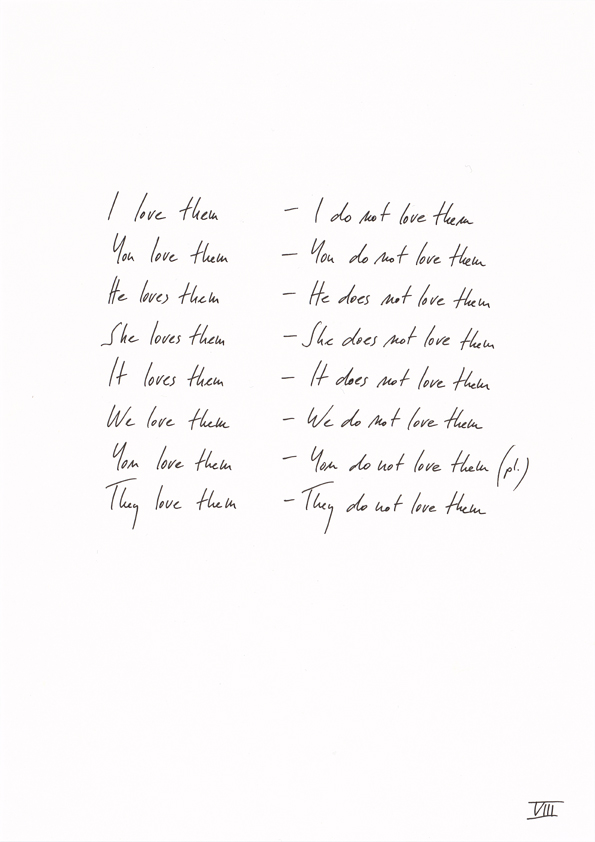 I love them – I do not love them
You love them – You do not love them
He loves them – He does not love them
She loves them – She does not love them
It loves them – It does not love them
We love them – We do not love them
You love them – You do not love them (pl.)
They love them – They do not love them
VIII